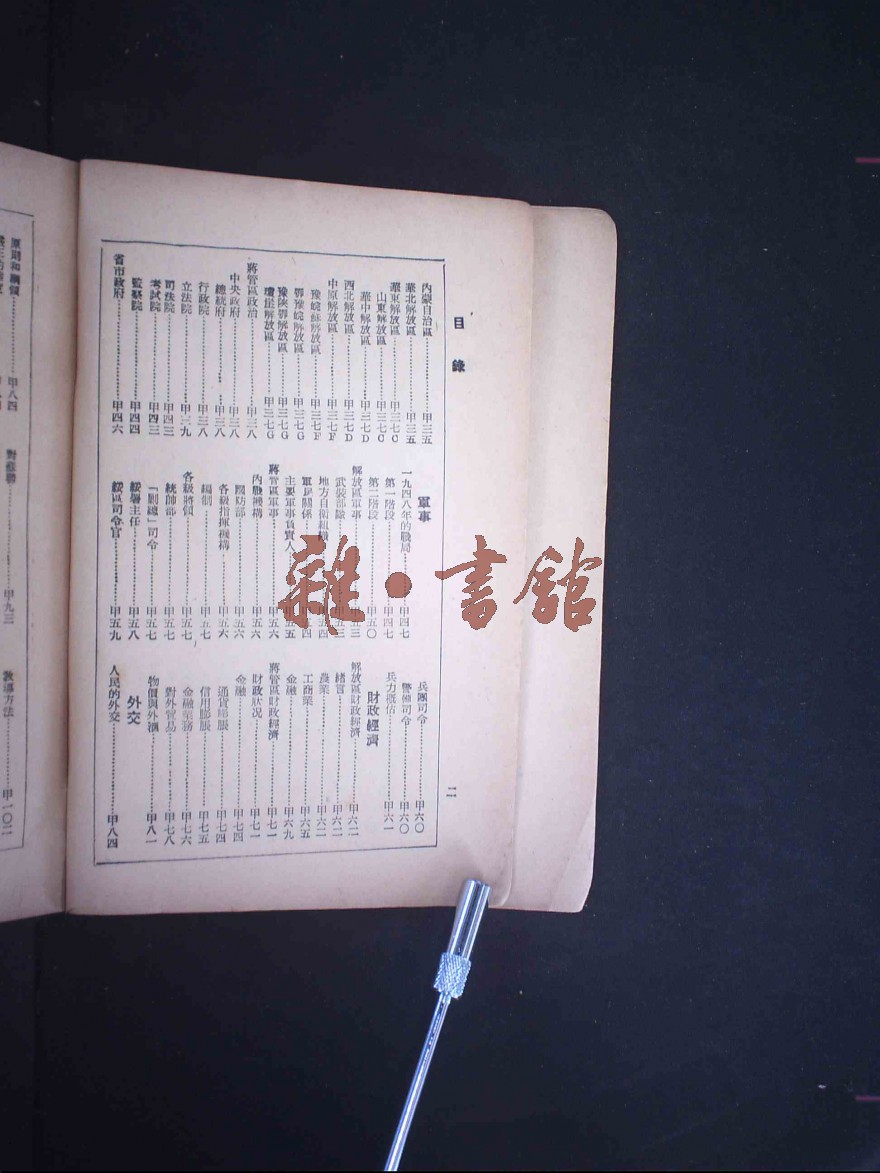 目錄
二
內蒙自治區…………甲三五
華北解放區…………甲三五
華東解放區…………甲三七C
山東解放區…………甲三七C
華中解放區…………甲三七D
西北解放區…………甲三七D
中原解放區…………甲三七F
豫皖蘇解放區…………甲三七F
鄂豫皖解放區…………甲三七G
豫陝鄂解放區…………甲三七G
瓊崖解放區…………甲三七G
蔣管區政治…………甲三八
中央政府…………甲三八
總統府…………甲三八
行政院…………甲三八
立法院…………甲三九
司法院…………甲四三
考試院…………甲四三
監察院…………甲四四
省市政府…………甲四六
軍事
一九四八年的戰局…………甲四七
第一階段…………甲四七
第二階段…………甲五〇
解放區軍事…………甲五三
武裝部隊…………甲五三
地方自衛組織…………甲五四
軍民關係…………甲五四
主要軍事負責人…………甲五五
蔣管區軍事…………甲五六
內戰機構…………甲五六
國防部…………甲五六
各級指揮機構…………甲五六
編制…………甲五七
各級將領…………甲五七
統帥部…………甲五七
「剿總」司令…………甲五七
綏署主任…………甲五八
綏區司令官…………甲五九
兵團司令…………甲六〇
警備司令…………甲六〇
兵力概估…………甲六一
財政經濟
解放區財政經濟…………甲六二
緒言…………甲六二
農業…………甲六二
工商業…………甲六五
金融…………甲六九
蔣管區財政經濟…………甲七一
財政狀况…………甲七一
金融…………甲七四
通貨膨脹…………甲七四
信用膨脹…………甲七五
金融業務…………甲七六
對外貿易…………甲七八
物價與外滙…………甲八一
外交
人民的外交…………甲八四
原則和綱領…………甲八四
對蘇聯…………甲九三
教導方法…………甲一〇二
雜·書舘